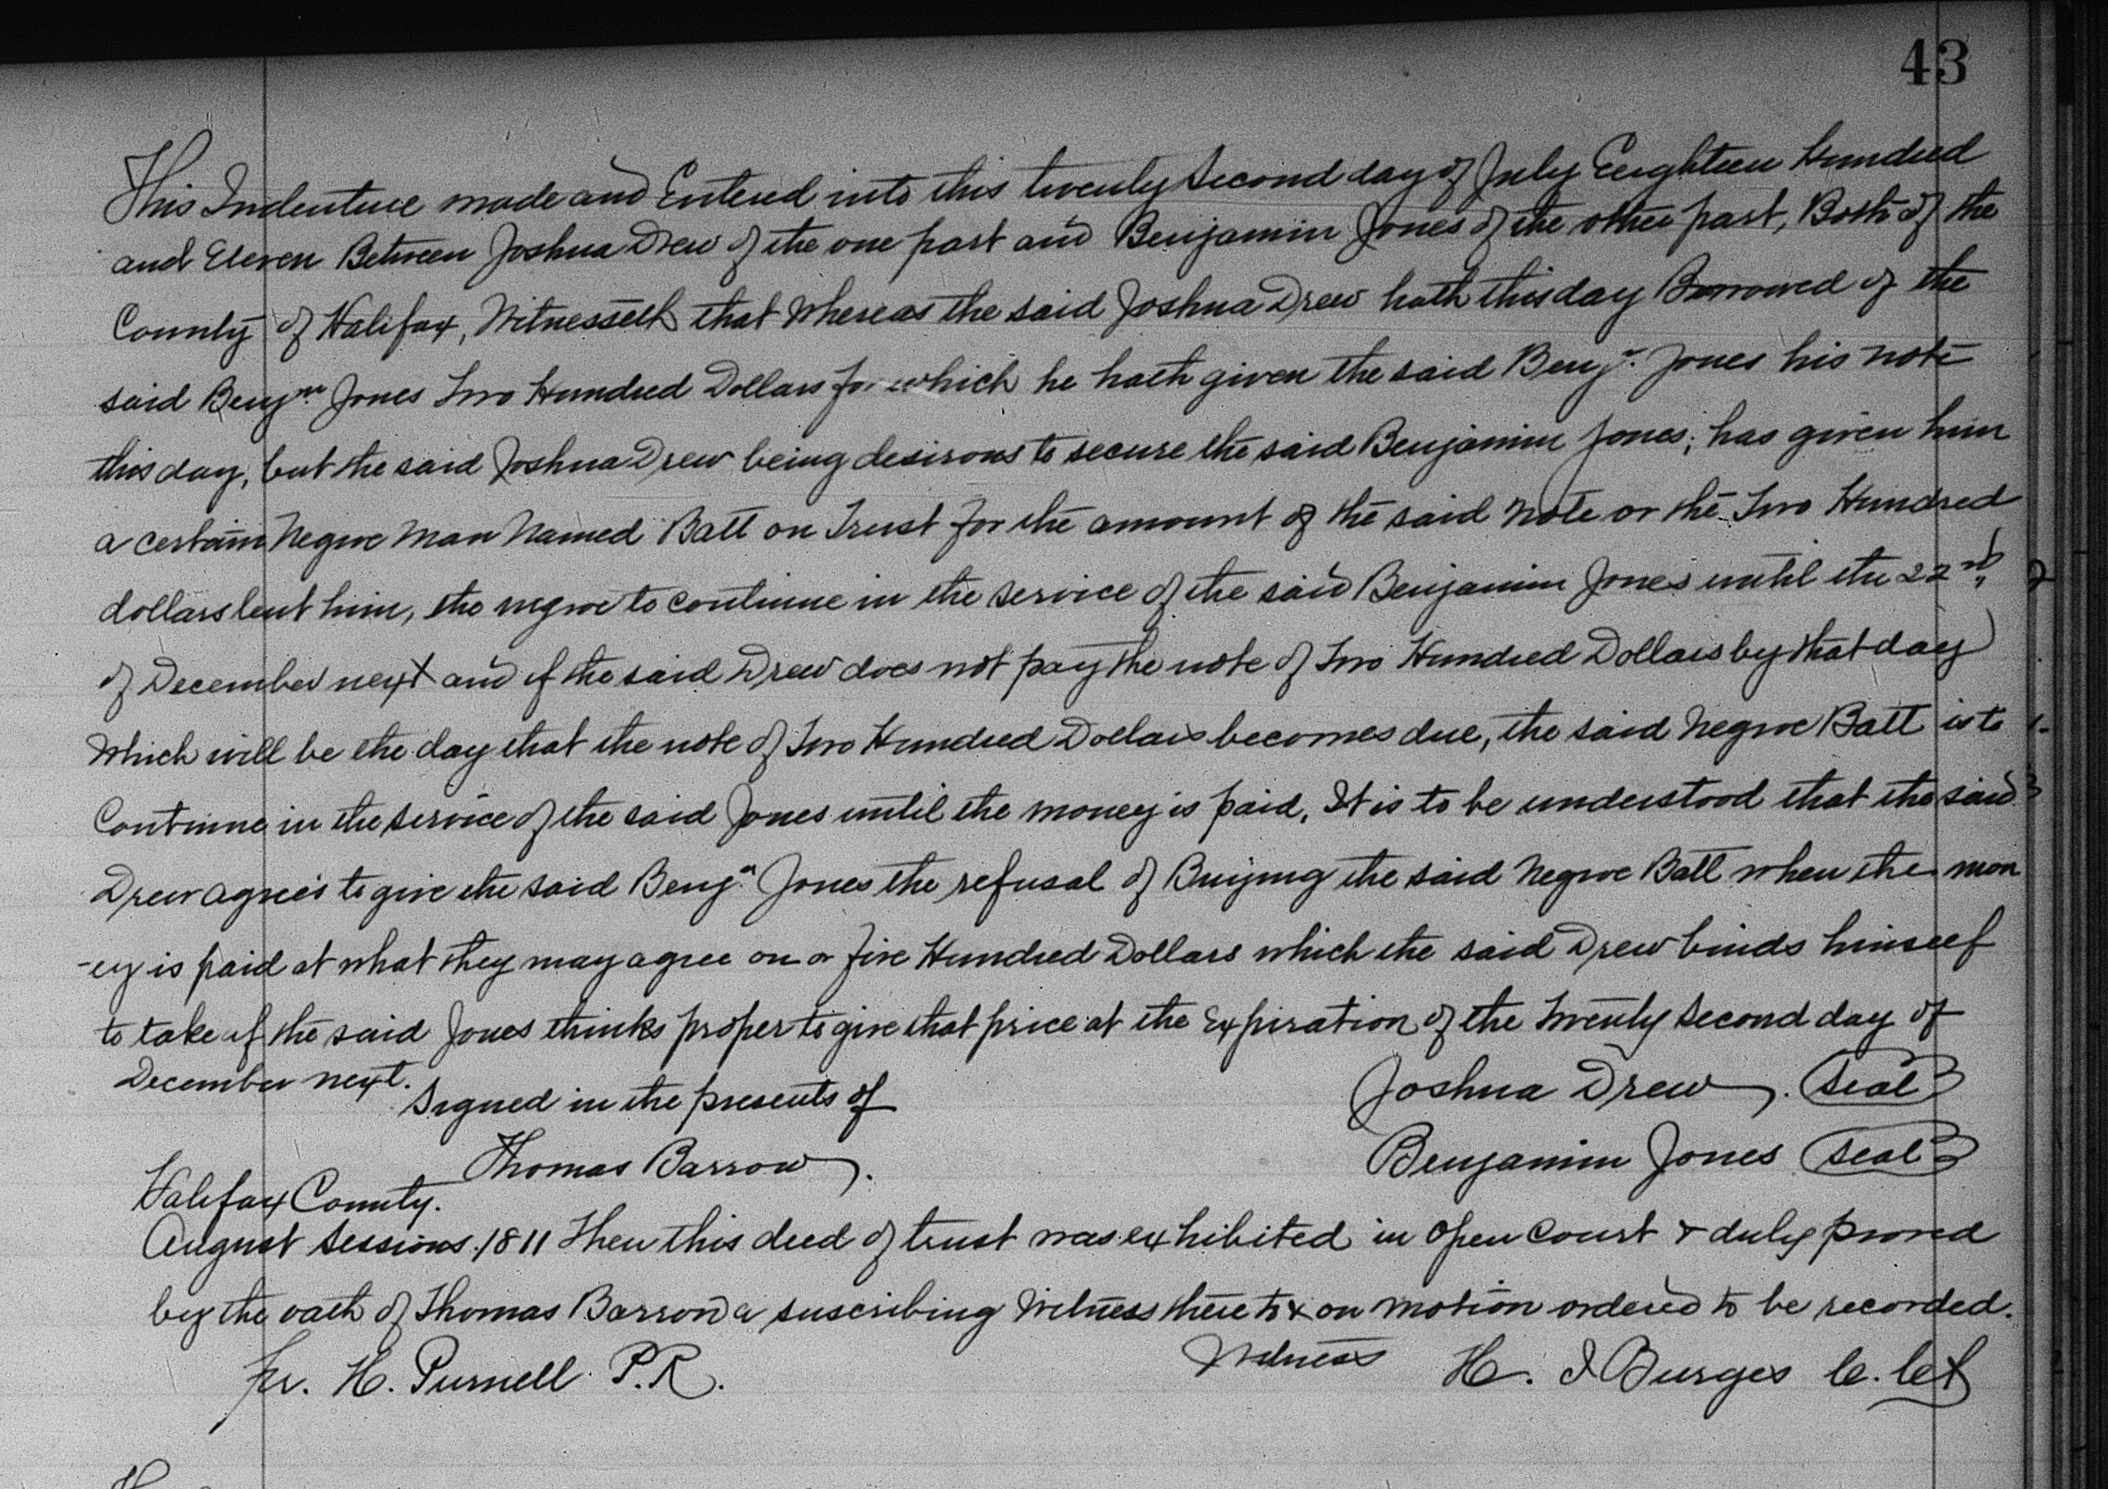 43
This Indenture made and Entered into this twenty second day of July Eeighteen Hundred
and Eleven Between Joshua Drew of the one part and Benjamin Jones of the other part, Both of the
County of Halifax, Witnesseth that Whereas the said Joshua Drew hath this day Borrowed of the
said Benjn Jones Two Hundred Dollars for which he hath given the said Benjn. Jones his note
this day, but the said Joshua Drew being desirous to secure the said Benjamin Jones; has given him
a certain Negroe Man Named Batt on Trust for the amount of the said Note or the Two Hundred
dollars lent him, the negroe to continue in the service of the said Benjamin Jones until the 22nd,
of December next and if the said Drew does not pay the note of Two Hundred Dollars by that day
Which will be the day that the note of Two Hundred Dollars becomes due, the said Negroe Batt is to
Continue in the service of the said Jones until the money is paid, It is to be understood that the said
Drew agrees to give the said Benjn. Jones the refusal of Buijng the said Negroe Batt when the mon
-ey is paid at what they may agree on or five Hundred Dollars which the said Drew binds himself
to take if the said Jones thinks proper to give that price at the Expiration of the Twenty second day of
December next.
Signed in the presents of
Joshua Drew. Seal
Thomas Barrow.
Benjamin Jones Seal
Halifax County.
August Sessions, 1811 Then this deed of trust was exhibited in open Court & duly proved
by the oath of Thomas Barrow a suscribing Witness there to & on motion ordered to be recorded.
pr. H. Purnell. P.R.
Witness H. J Burges C. Ct